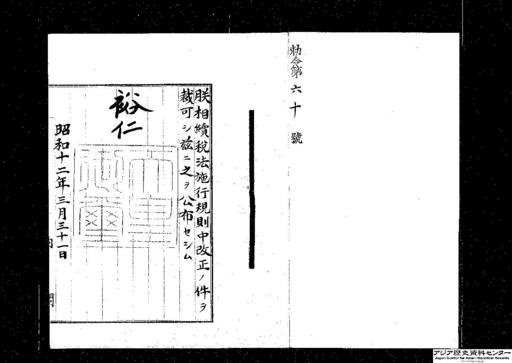 勅令第六十號
朕相續税法施行規則中改正ノ件ヲ
裁可シ茲ニ之ヲ公布セシム
裕仁
昭和十二年三月三十一日
アジア歴史資料センター
Japan Center for Asian Historical Records